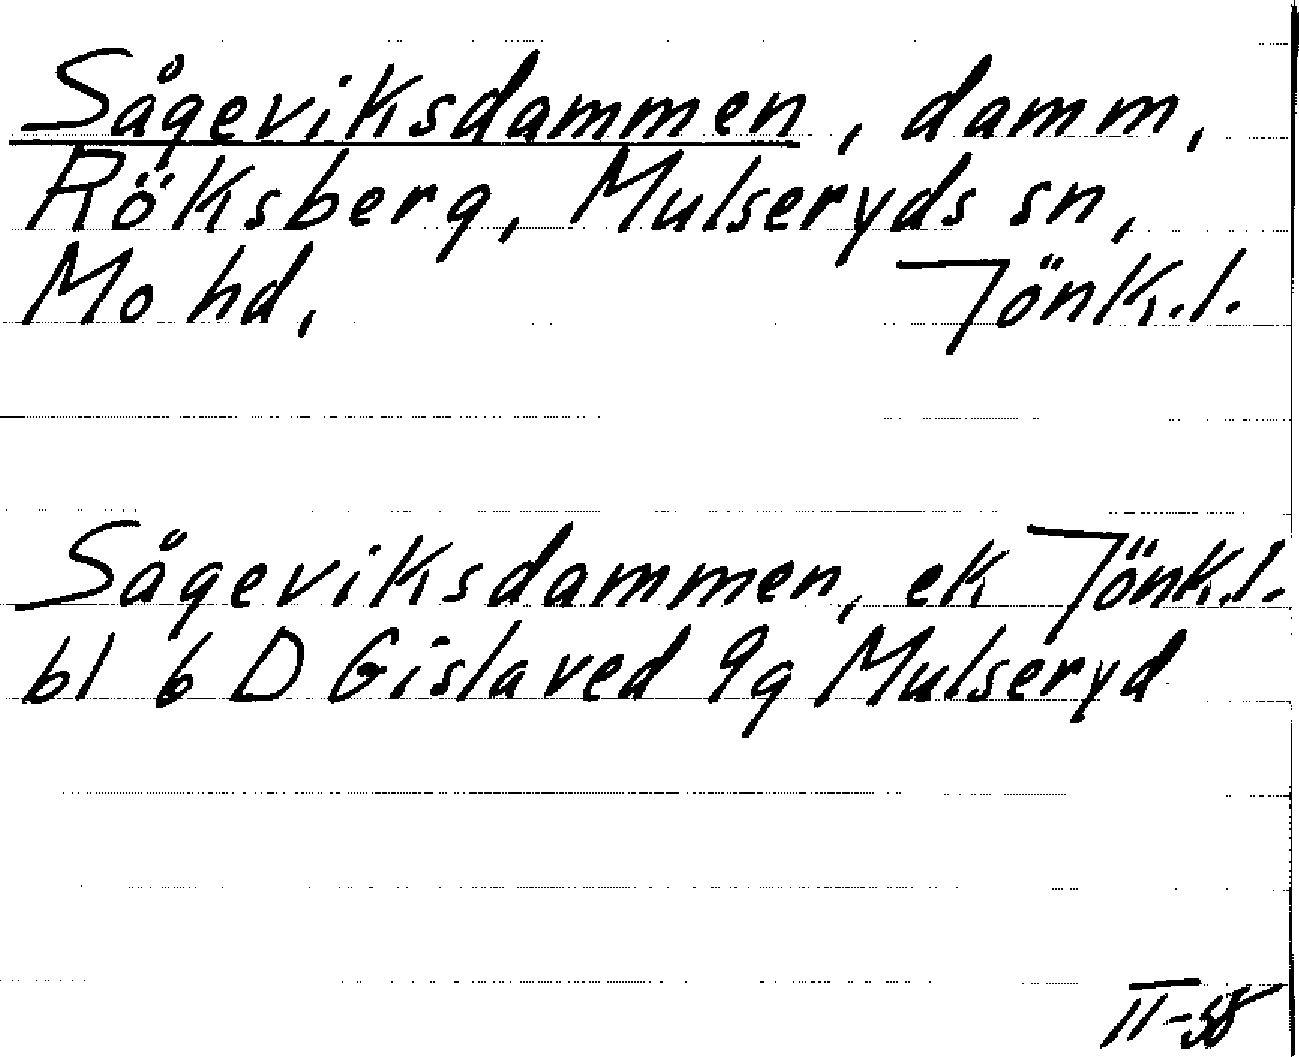 Sågeviksdammen, damm,
Röksberg, Mulseryds sn,
Mo hd, Jönk.l.
Sågeviksdammen, ek Jönk.l.
bl 6 D Gislaved 9g Mulseryd
II-58